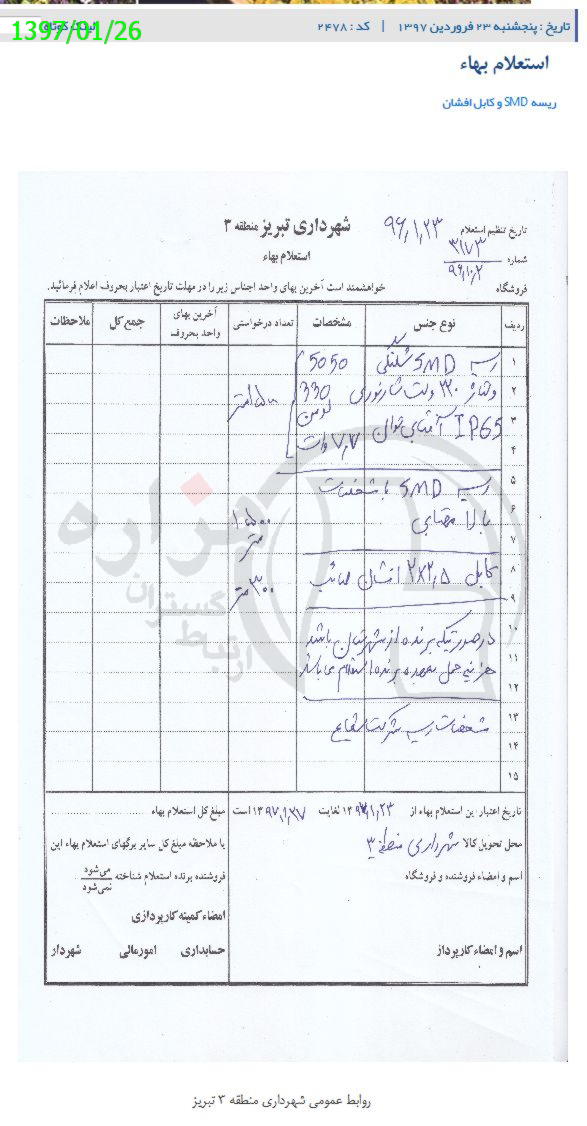 تاریخ : پنجشنبه ۲۳ فروردین ۱۳۹۷ | کد : ۲۴۷۸
1397/01/26
استعلام بهاء
ریسه SMD و کابل افشان
شهرداری تبریز منطقه ۳
استعلام بهاء
تاریخ تنظیم استعلام ۹۶/۱/۲۳
شماره ۳۱۷۳
فروشگاه
خواهشمند است آخرین بهای واحد اجناس زیر را در مهلت تاریخ اعتبار بحروف اعلام فرمائید.
ردیف نوع جنس مشخصات تعداد درخواستی آخرین بهای واحد بحروف جمع کل ملاحظات
۱ ریسه SMD شلنگی 5050
۲ ولتاژ ۲۲۰ ولت شار نوری 330 ۱۵۰۰ متر
۳ لومن IP65 آفتابی توان
۴ ۷,۷ وات
۵ ریسه SMD با مشخصات
۶ بالا مهتابی ۱۵۰۰
۷ متر
۸ کابل ۲x۲,۵ افشان
۹ ۳۰۰ متر
۱۰ در صورتیکه برنده از شهرستان باشد
۱۱ هزینه حمل بعهده برنده استعلام می باشد
۱۲
۱۳ مشخصات ریسه شرکت شعاع
۱۴
۱۵
تاریخ اعتبار این استعلام بهاء از ۱۳۹۷/۱/۲۳ لغایت ۱۳۹۷/۱/۲۷ است
محل تحویل کالا شهرداری منطقه ۳
اسم و امضاء فروشنده و فروشگاه
اسم و امضاء کارپرداز
مبلغ کل استعلام بهاء
با ملاحظه مبلغ کل سایر برگهای استعلام بهاء این
فروشنده برنده استعلام شناخته می‌شود
نمی‌شود
امضاء کمیته کارپردازی
حسابداری امورمالی شهردار
هزاره
گستران
ارتباط
روابط عمومی شهرداری منطقه ۳ تبریز